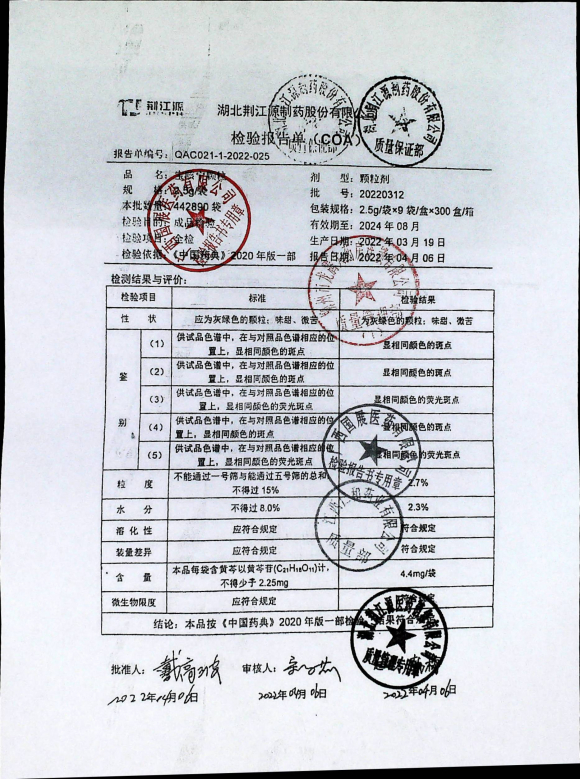 荆江源
湖北荆江源制药股份有限
检验报告单（COA）
质量保证部
报告单编号：QAC021-1-2022-025
剂 型：颗粒剂
批 号：20220312
442890袋
包装规格：2.5g/袋×9袋/盒×300盒/箱
有效期至：2024年08月
生产日期：2022年03月19日
检验依据：《中国药典》2020年版一部
报告日期：2022年04月06日
检测结果与评价：
检验项目 标准 检验结果
性 状 应为灰绿色的颗粒；味甜、微苦 为灰绿色的颗粒；味甜、微苦
鉴别
（1） 供试品色谱中，在与对照品色谱相应的位置上，显相同颜色的斑点 显相同颜色的斑点
（2） 供试品色谱中，在与对照品色谱相应的位置上，显相同颜色的斑点 显相同颜色的斑点
（3） 供试品色谱中，在与对照品色谱相应的位置上，显相同颜色的荧光斑点 显相同颜色的荧光斑点
（4） 供试品色谱中，在与对照品色谱相应的位置上，显相同颜色的斑点 显相同颜色的斑点
（5） 供试品色谱中，在与对照品色谱相应的位置上，显相同颜色的荧光斑点 显相同颜色的荧光斑点
粒 度 不能通过一号筛与能通过五号筛的总和不得过15% 2.7%
水 分 不得过8.0% 2.3%
溶化性 应符合规定 符合规定
装量差异 应符合规定 符合规定
含 量 本品每袋含黄芩以黄芩苷(C₂₁H₁₈O₁₁)计，不得少于2.25mg 4.4mg/袋
微生物限度 应符合规定
结论：本品按《中国药典》2020年版一部检验，结果符合
检验报告书专用章
质量部
批准人： 审核人：
2022年04月06日 2022年04月06日 2022年04月06日